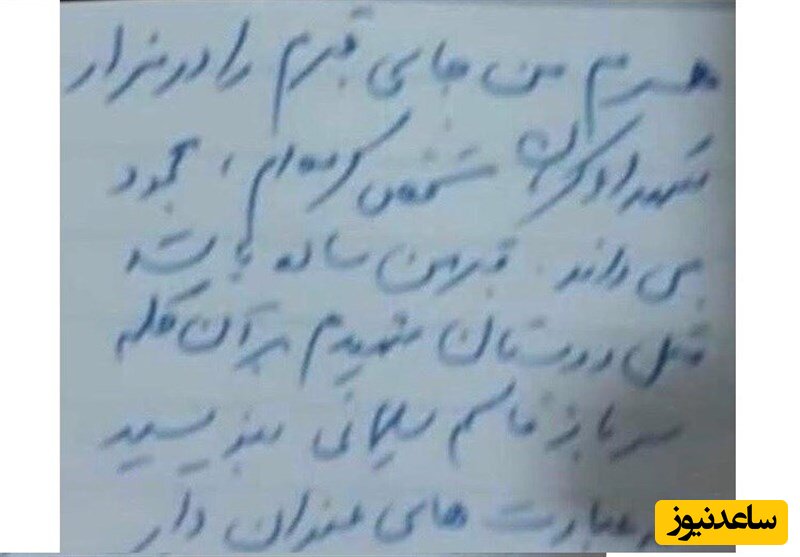 همسرم من جای قبرم را در مزار
شهدای کرمان مشخص کرده‌ام، محمود
می داند. قبر من ساده باشد
مثل دوستان شهیدم بر آن کلمه
سرباز قاسم سلیمانی بنویسید
عبارت های عنوان دار
ساعدنیوز